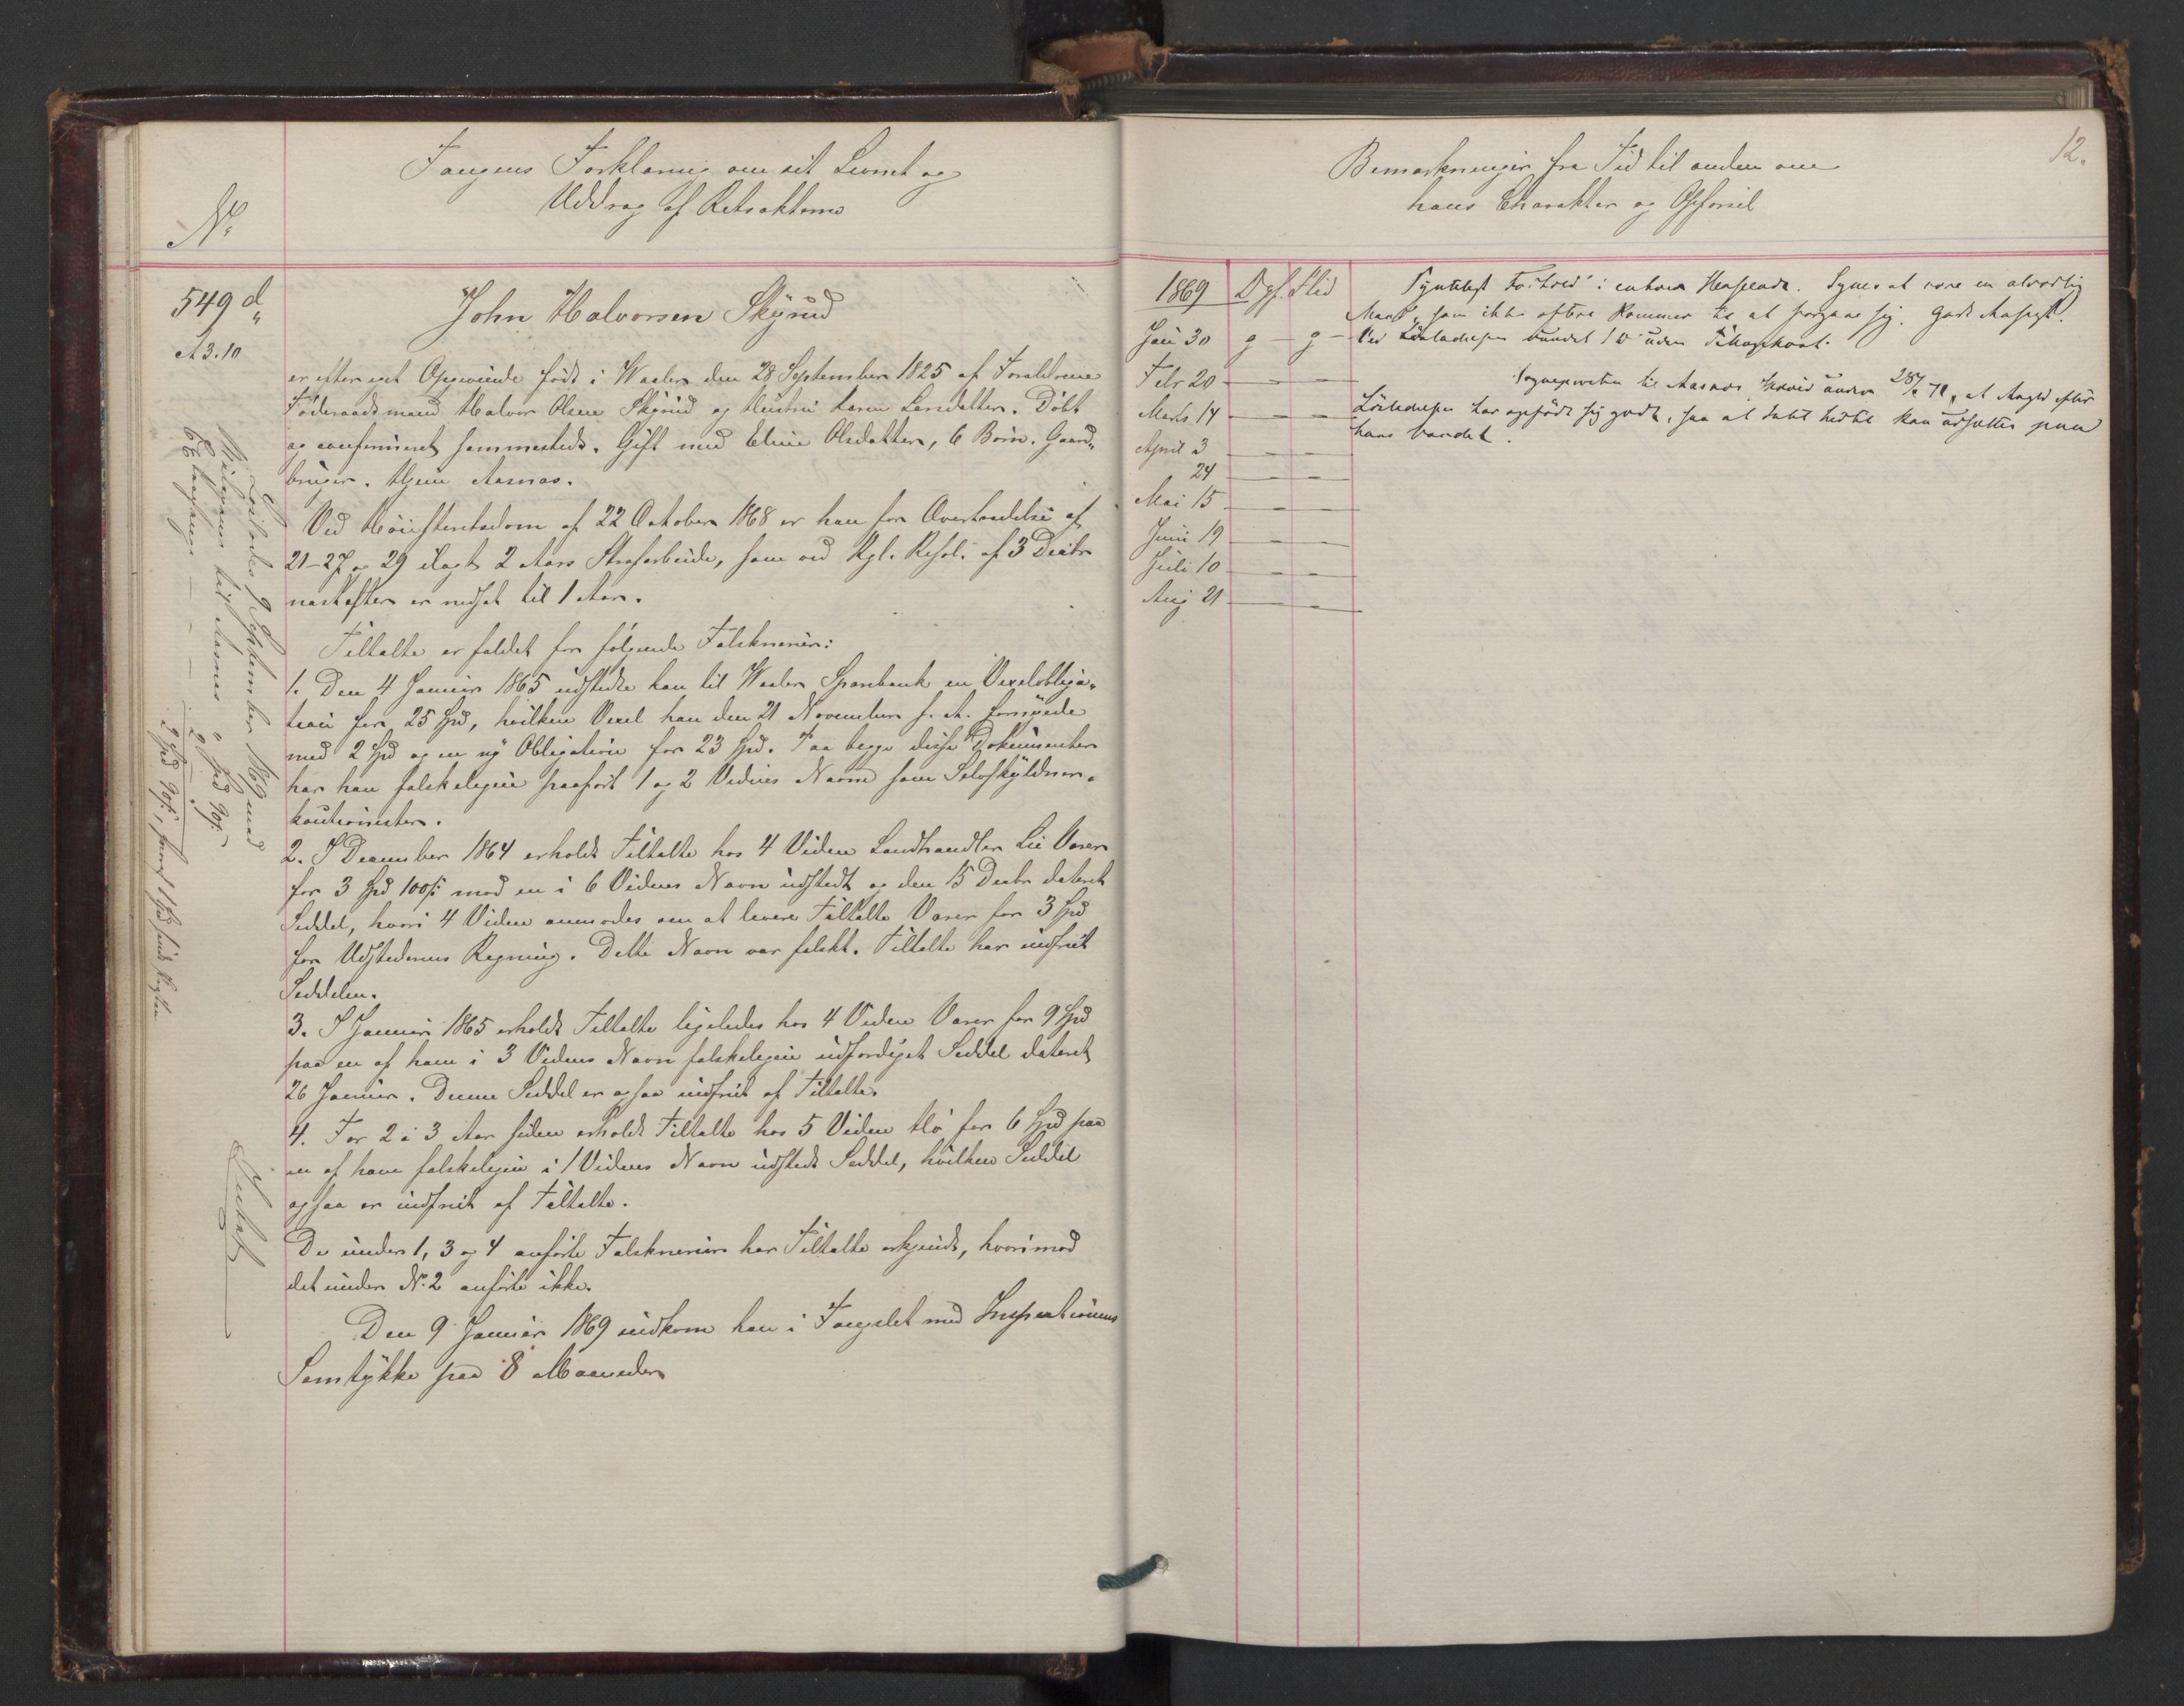 Fangens Forklaring om sit Levnet og
Uddrag af Retsakterne
No
549 d
A 3.10
John Halvorsen Skyrud
er efter eget Opgivende født i Waaler den 28 September 1825 af Forældrene
Føderaadsmand Halvor Olsen Skyrud og Hustru Karen Larsdatter. Døbt
og confirmeret sammesteds. Gift med Eline Olsdatter, 6 Børn. Gaard„
bruger. Hjem Aasnæs.
Ved Høiesteretsdom af 22 Oktober 1868 er han for Overtrædelse af
21-27 og 29 ilagt 2 Aars Strafarbeide, som ved Kgl. Resol. af 3 Decbr
næstefter er nedsat til 1 Aar.
Tiltalte er fældet for følgende Falsknerier:
1. Den 4 Januar 1865 udstedte han til Waaler Sparebank en Vexelobliga„
tion for 25 Spd, hvilken Vexel han den 21 November s. A. fornyede
med 2 Spd og en ny Obligation for 23 Spd. Paa begge disse Dokumenter
har han falskeligen paaført 1 og 2 Vidnes Navne som Selvskyldner„
kautionister.
2. I December 1864 erholdt Tiltalte hos 4 Vidne Landhandler Lie Varer
for 3 Spd 100 ß mod en i 6 Vidnes Navn udstedt og den 15 Decbr dateret
Seddel, hvori 4 Vidne anmodes om at levere Tiltalte Varer for 3 Spd
for Udstederens Regning. Dette Navn var falskt. Tiltalte har indfriet
Seddelen.
3. I Januar 1865 erholdt Tiltalte ligeledes hos 4 Vidne Varer for 9 Spd
paa en af ham i 3 Vidnes Navn falskeligen udfærdiget Seddel dateret
26 Januar. Denne Seddel er ogsaa indfriet af Tiltalte.
4. For 2 à 3 Aar siden erholdt Tiltalte hos 5 Vidne Hø for 6 Spd paa
en af ham falskeligen i 1 Vidnes Navn udstedt Seddel, hvilken Seddel
ogsaa er indfriet af Tiltalte.
De under 1, 3 og 4 anførte Falsknerier har Tiltalte erkjendt, hvorimod
det under N. 2 anførte ikke.
Den 9 Januar 1869 indkom han i Fængslet med Inspectionens
Samtykke paa 8 Maaneder
Løslades 9 September 1869 med
til Aasnæs 2 Spd 90 ß.
2 Spd 90 ß,
Bemærkninger fra Tid til anden om
hans Charakter og Opførsel
12.
1869 Opf. Flid
Jan 30 g - g -
Febr 20 - - -
Marts 14 - - -
April 3 - - -
24 - - -
Mai 15 - - -
Juni 19 - - -
Juli 10 - - -
Aug 21 - - -
i enhver Henseende. Synes at være en alvorlig
Mand, som ikke oftere kommer til at forgaae sig. Godt Aasyn.
Ved Løsladelsen
Sognepresten til Aasnæs under 28/ 70, at efter
Løsladelsen har opført sig godt, saa at Intet hidtil kan udsættes paa
hans Vandel.